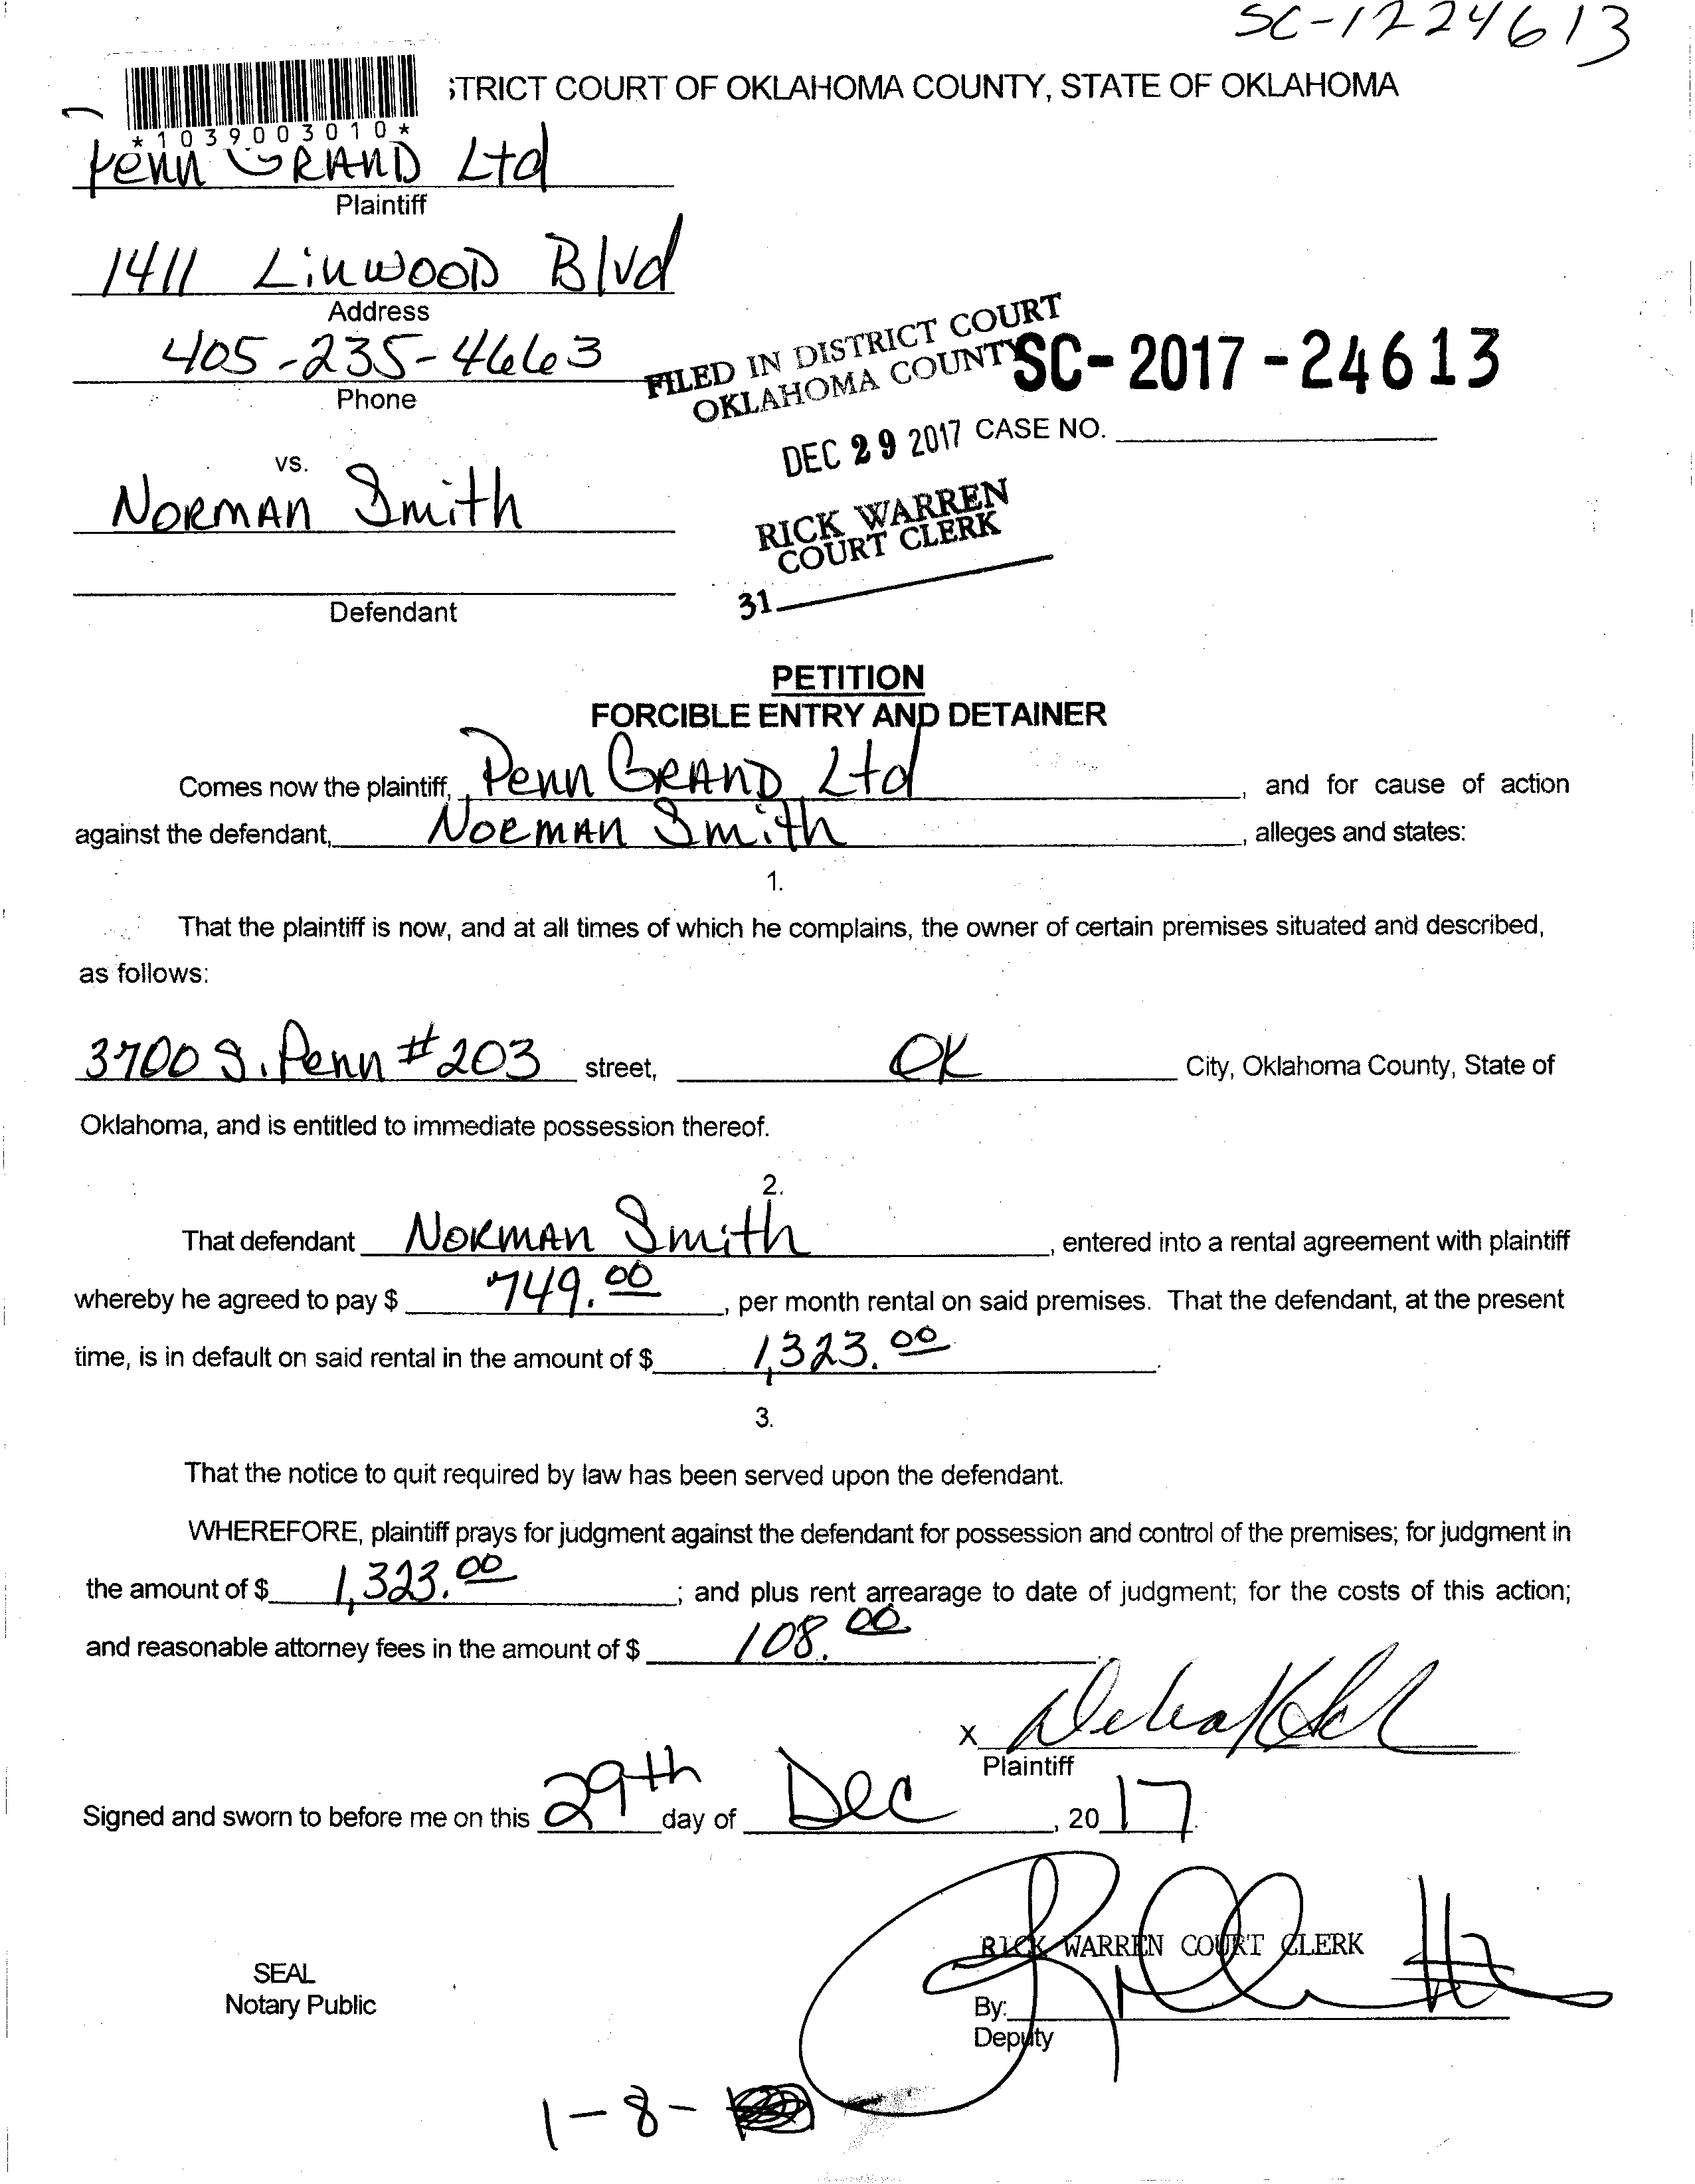 SC-1724613
TRICT COURT OF OKLAHOMA COUNTY, STATE OF OKLAHOMA
*1039003010*
Penn GRAND Ltd
Plaintiff
1411 Linwood Blvd
Address
405-235-4663
Phone
FILED IN DISTRICT COURT
OKLAHOMA COUNTY
SC-2017-24613
DEC 29 2017
CASE NO.
vs.
NORMAN Smith
RICK WARREN
COURT CLERK
31
Defendant
PETITION
FORCIBLE ENTRY AND DETAINER
Comes now the plaintiff, Penn GRAND Ltd, and for cause of action
against the defendant, NORMAN Smith, alleges and states:
1.
That the plaintiff is now, and at all times of which he complains, the owner of certain premises situated and described,
as follows:
3700 S. Penn #203 street, OK City, Oklahoma County, State of
Oklahoma, and is entitled to immediate possession thereof.
2.
That defendant NORMAN Smith, entered into a rental agreement with plaintiff
whereby he agreed to pay $ 749.00, per month rental on said premises. That the defendant, at the present
time, is in default on said rental in the amount of $ 1,323.00.
3.
That the notice to quit required by law has been served upon the defendant.
WHEREFORE, plaintiff prays for judgment against the defendant for possession and control of the premises; for judgment in
the amount of $ 1,323.00; and plus rent arrearage to date of judgment; for the costs of this action;
and reasonable attorney fees in the amount of $ 108.00.
X
Plaintiff
Signed and sworn to before me on this 29th day of Dec, 2017.
RICK WARREN COURT CLERK
SEAL
Notary Public
By:
Deputy
1-8-